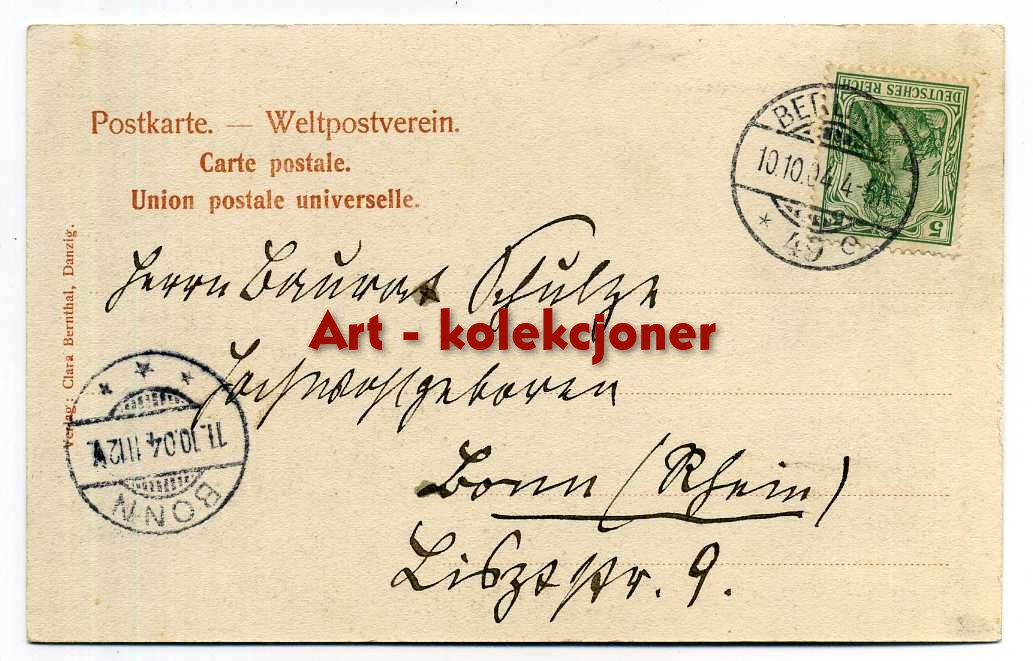 Postkarte. — Weltpostverein.
Carte postale.
Union postale universelle.
DEUTSCHES REICH
5
10.10.04. 4-
* 49 e
Verlag: Clara Bernthal, Danzig.
Herrn Baurat Schulze
Art - kolekcjoner
Hochwohlgeboren
Bonn (Rhein)
Lisztstr. 9.
11.10.04. 11-12 V.
BONN